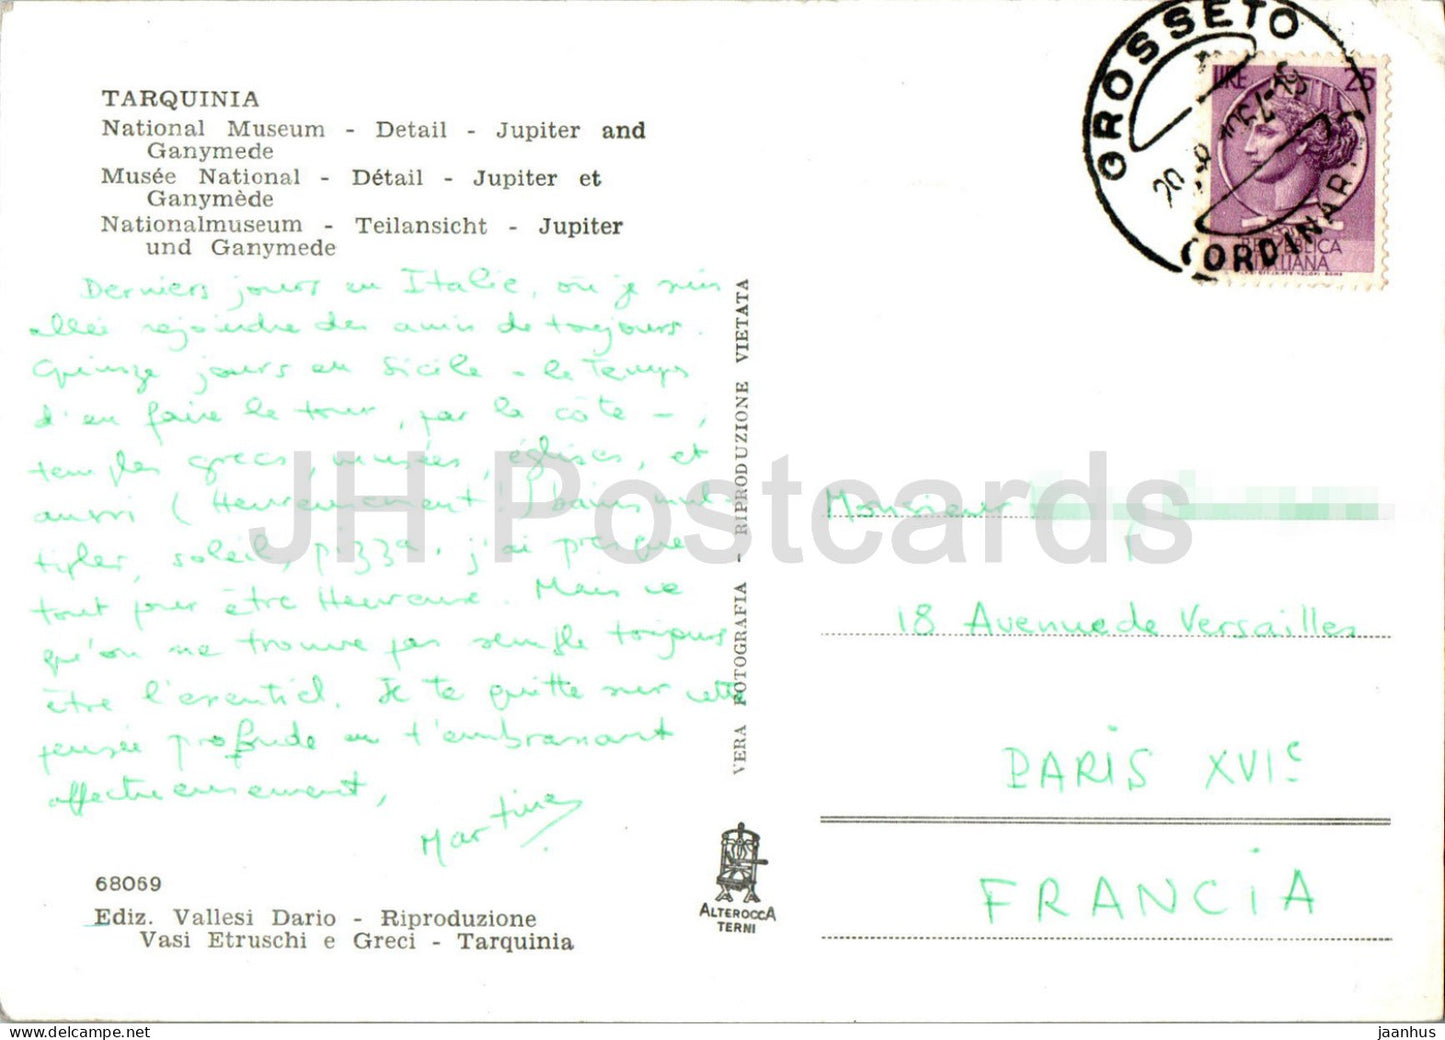 TARQUINIA
National Museum - Detail - Jupiter and
Ganymede
Musée National - Détail - Jupiter et
Ganymède
Nationalmuseum - Teilansicht - Jupiter
und Ganymede
Derniers jours en Italie, où je suis
allée rejoindre des amis de toujours.
Quinze jours en Sicile - le temps
d'en faire le tour, par la côte -,
temples grecs, musées, églises, et
aussi (Heureusement!) bains mul-
tiples, soleil, pizza. j'ai presque
tout pour être Heureuse. Mais ce
qu'on ne trouve pas semble toujours
être l'essentiel. Je te quitte sur cette
pensée profonde en t'embrassant
affectueusement,
Martine
68069
Ediz. Vallesi Dario - Riproduzione
Vasi Etruschi e Greci - Tarquinia
VERA FOTOGRAFIA - RIPRODUZIONE VIETATA
ALTEROCCA
TERNI
GROSSETO
(ORDINAR
LIRE 25
REPVBBLICA
ITALIANA
Monsieur
18 Avenue de Versailles
PARIS XVIe
FRANCIA
JH Postcards
jaanhus